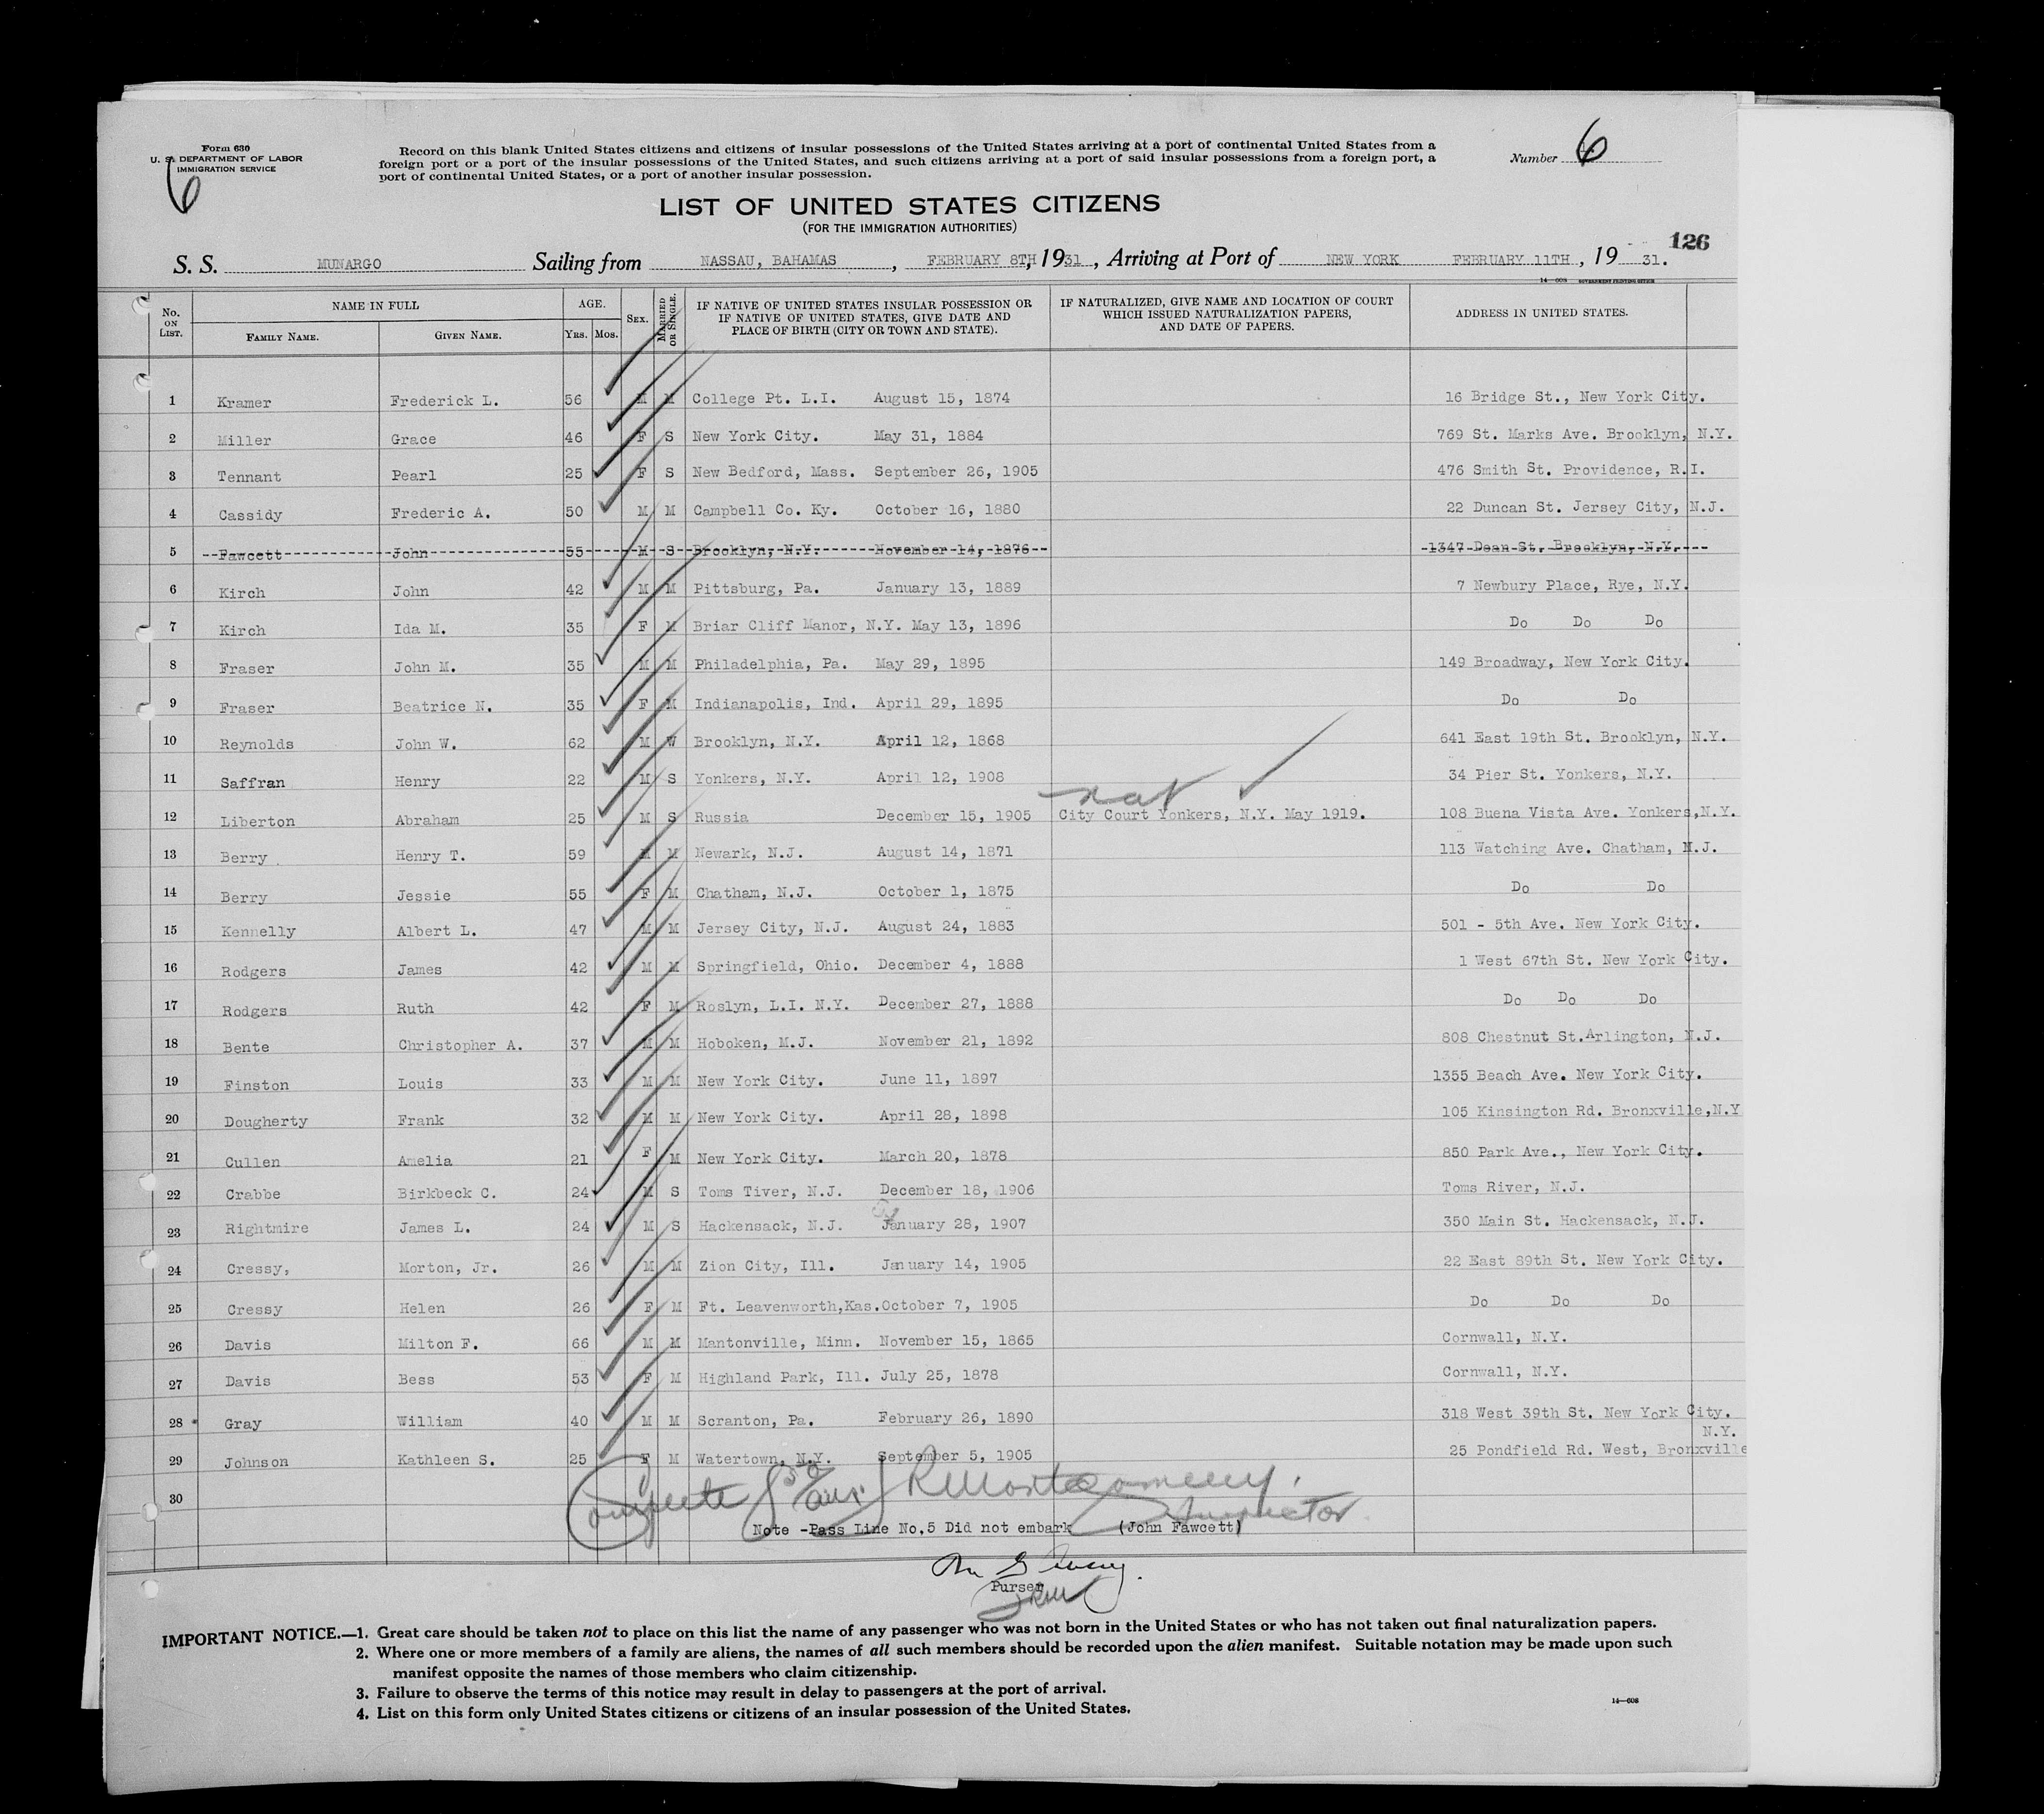 Form 630
U. S. DEPARTMENT OF LABOR
IMMIGRATION SERVICE
6
Record on this blank United States citizens and citizens of insular possessions of the United States arriving at a port of continental United States from a
foreign port or a port of the insular possessions of the United States, and such citizens arriving at a port of said insular possessions from a foreign port, a
port of continental United States, or a port of another insular possession.
Number 6
LIST OF UNITED STATES CITIZENS
(FOR THE IMMIGRATION AUTHORITIES)
126
S. S. MUNARGO Sailing from NASSAU, BAHAMAS, FEBRUARY 8TH, 1931, Arriving at Port of NEW YORK FEBRUARY 11TH, 19 31.
14—608 GOVERNMENT PRINTING OFFICE
No. ON LIST. NAME IN FULL FAMILY NAME. GIVEN NAME. AGE. YRS. MOS. SEX. MARRIED OR SINGLE. IF NATIVE OF UNITED STATES INSULAR POSSESSION OR IF NATIVE OF UNITED STATES, GIVE DATE AND PLACE OF BIRTH (CITY OR TOWN AND STATE). IF NATURALIZED, GIVE NAME AND LOCATION OF COURT WHICH ISSUED NATURALIZATION PAPERS, AND DATE OF PAPERS. ADDRESS IN UNITED STATES.
1 Kramer Frederick L. 56 M M College Pt. L.I. August 15, 1874 16 Bridge St., New York City.
2 Miller Grace 46 F S New York City. May 31, 1884 769 St. Marks Ave. Brooklyn, N.Y.
3 Tennant Pearl 25 F S New Bedford, Mass. September 26, 1905 476 Smith St. Providence, R.I.
4 Cassidy Frederic A. 50 M M Campbell Co. Ky. October 16, 1880 22 Duncan St. Jersey City, N.J.
5 Fawcett John 55 M S Brooklyn, N.Y. November 14, 1876 1347 Dean St. Brooklyn, N.Y.
6 Kirch John 42 M M Pittsburg, Pa. January 13, 1889 7 Newbury Place, Rye, N.Y.
7 Kirch Ida M. 35 F M Briar Cliff Manor, N.Y. May 13, 1896 Do Do Do
8 Fraser John M. 35 M M Philadelphia, Pa. May 29, 1895 149 Broadway, New York City.
9 Fraser Beatrice N. 35 F M Indianapolis, Ind. April 29, 1895 Do Do
10 Reynolds John W. 62 M W Brooklyn, N.Y. April 12, 1868 641 East 19th St. Brooklyn, N.Y.
11 Saffran Henry 22 M S Yonkers, N.Y. April 12, 1908 34 Pier St. Yonkers, N.Y.
nat
12 Liberton Abraham 25 M S Russia December 15, 1905 City Court Yonkers, N.Y. May 1919. 108 Buena Vista Ave. Yonkers,N.Y.
13 Berry Henry T. 59 M M Newark, N.J. August 14, 1871 113 Watching Ave. Chatham, N.J.
14 Berry Jessie 55 F M Chatham, N.J. October 1, 1875 Do Do
15 Kennelly Albert L. 47 M M Jersey City, N.J. August 24, 1883 501 - 5th Ave. New York City.
16 Rodgers James 42 M M Springfield, Ohio. December 4, 1888 1 West 67th St. New York City.
17 Rodgers Ruth 42 F M Roslyn, L.I. N.Y. December 27, 1888 Do Do Do
18 Bente Christopher A. 37 M M Hoboken, M.J. November 21, 1892 808 Chestnut St.Arlington, N.J.
19 Finston Louis 33 M M New York City. June 11, 1897 1355 Beach Ave. New York City.
20 Dougherty Frank 32 M M New York City. April 28, 1898 105 Kinsington Rd. Bronxville,N.Y
21 Cullen Amelia 21 F M New York City. March 20, 1878 850 Park Ave., New York City.
22 Crabbe Birkbeck C. 24 M S Toms Tiver, N.J. December 18, 1906 Toms River, N.J.
23 Rightmire James L. 24 M S Hackensack, N.J. January 28, 1907 350 Main St. Hackensack, N.J.
24 Cressy, Morton, Jr. 26 M M Zion City, Ill. January 14, 1905 22 East 89th St. New York City.
25 Cressy Helen 26 F M Ft. Leavenworth,Kas.October 7, 1905 Do Do Do
26 Davis Milton F. 66 M M Mantonville, Minn. November 15, 1865 Cornwall, N.Y.
27 Davis Bess 53 F M Highland Park, Ill. July 25, 1878 Cornwall, N.Y.
28 Gray William 40 M M Scranton, Pa. February 26, 1890 318 West 39th St. New York City.
N.Y.
29 Johnson Kathleen S. 25 F M Watertown, N.Y. September 5, 1905 25 Pondfield Rd. West, Bronxville
30
R Montgomery.
Inspector
Note - Pass Line No.5 Did not embark (John Fawcett)
Purser
IMPORTANT NOTICE.—1. Great care should be taken not to place on this list the name of any passenger who was not born in the United States or who has not taken out final naturalization papers.
2. Where one or more members of a family are aliens, the names of all such members should be recorded upon the alien manifest. Suitable notation may be made upon such
manifest opposite the names of those members who claim citizenship.
3. Failure to observe the terms of this notice may result in delay to passengers at the port of arrival.
4. List on this form only United States citizens or citizens of an insular possession of the United States.
14—608